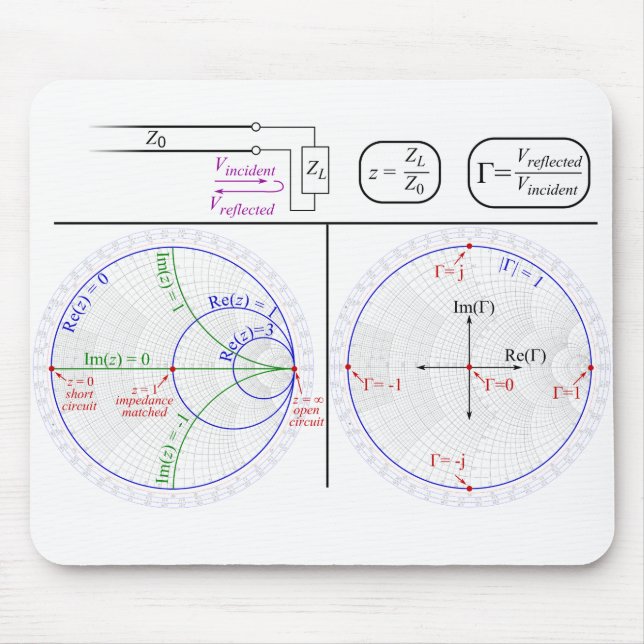 Z0
Vincident
Vreflected
ZL
z = ZL/Z0
Γ=Vreflected/Vincident
Re(z) = 0
Im(z) = 1
Re(z) = 1
Re(z)=3
Im(z) = 0
z = 0
short
circuit
z = 1
impedance
matched
z = ∞
open
circuit
Im(z) = -1
|Γ| = 1
Γ= j
Im(Γ)
Re(Γ)
Γ= -1
Γ=0
Γ=1
Γ= -j